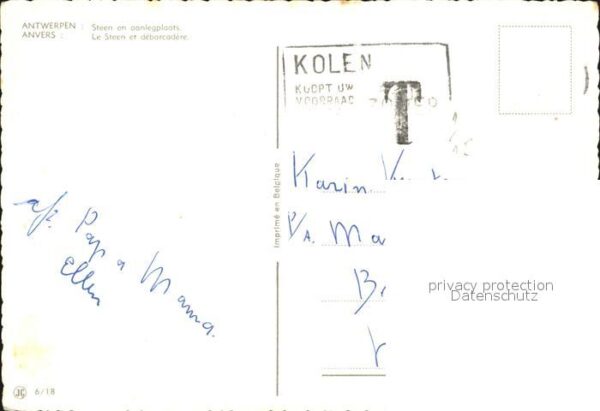 ANTWERPEN : Steen en aanlegplaats.
ANVERS : Le Steen et débarcadère.
KOLEN
KOOPT UW
VOORRAAD
T
Imprimé en Belgique
Karin
P/A. Ma
B
afz. Pap & Mama.
Ellen
privacy protection
Datenschutz
JC 6/18